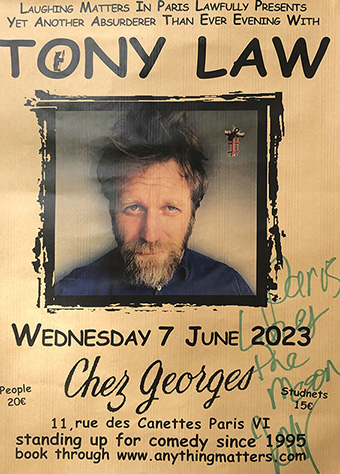 Laughing Matters In Paris Lawfully Presents
Yet Another Absurderer Than Ever Evening With
TONY LAW
Wednesday 7 June 2023
Chez Georges
People
20€
Studnets
15€
11, rue des Canettes Paris VI
standing up for comedy since 1995
book through www.anythingmatters.com
the